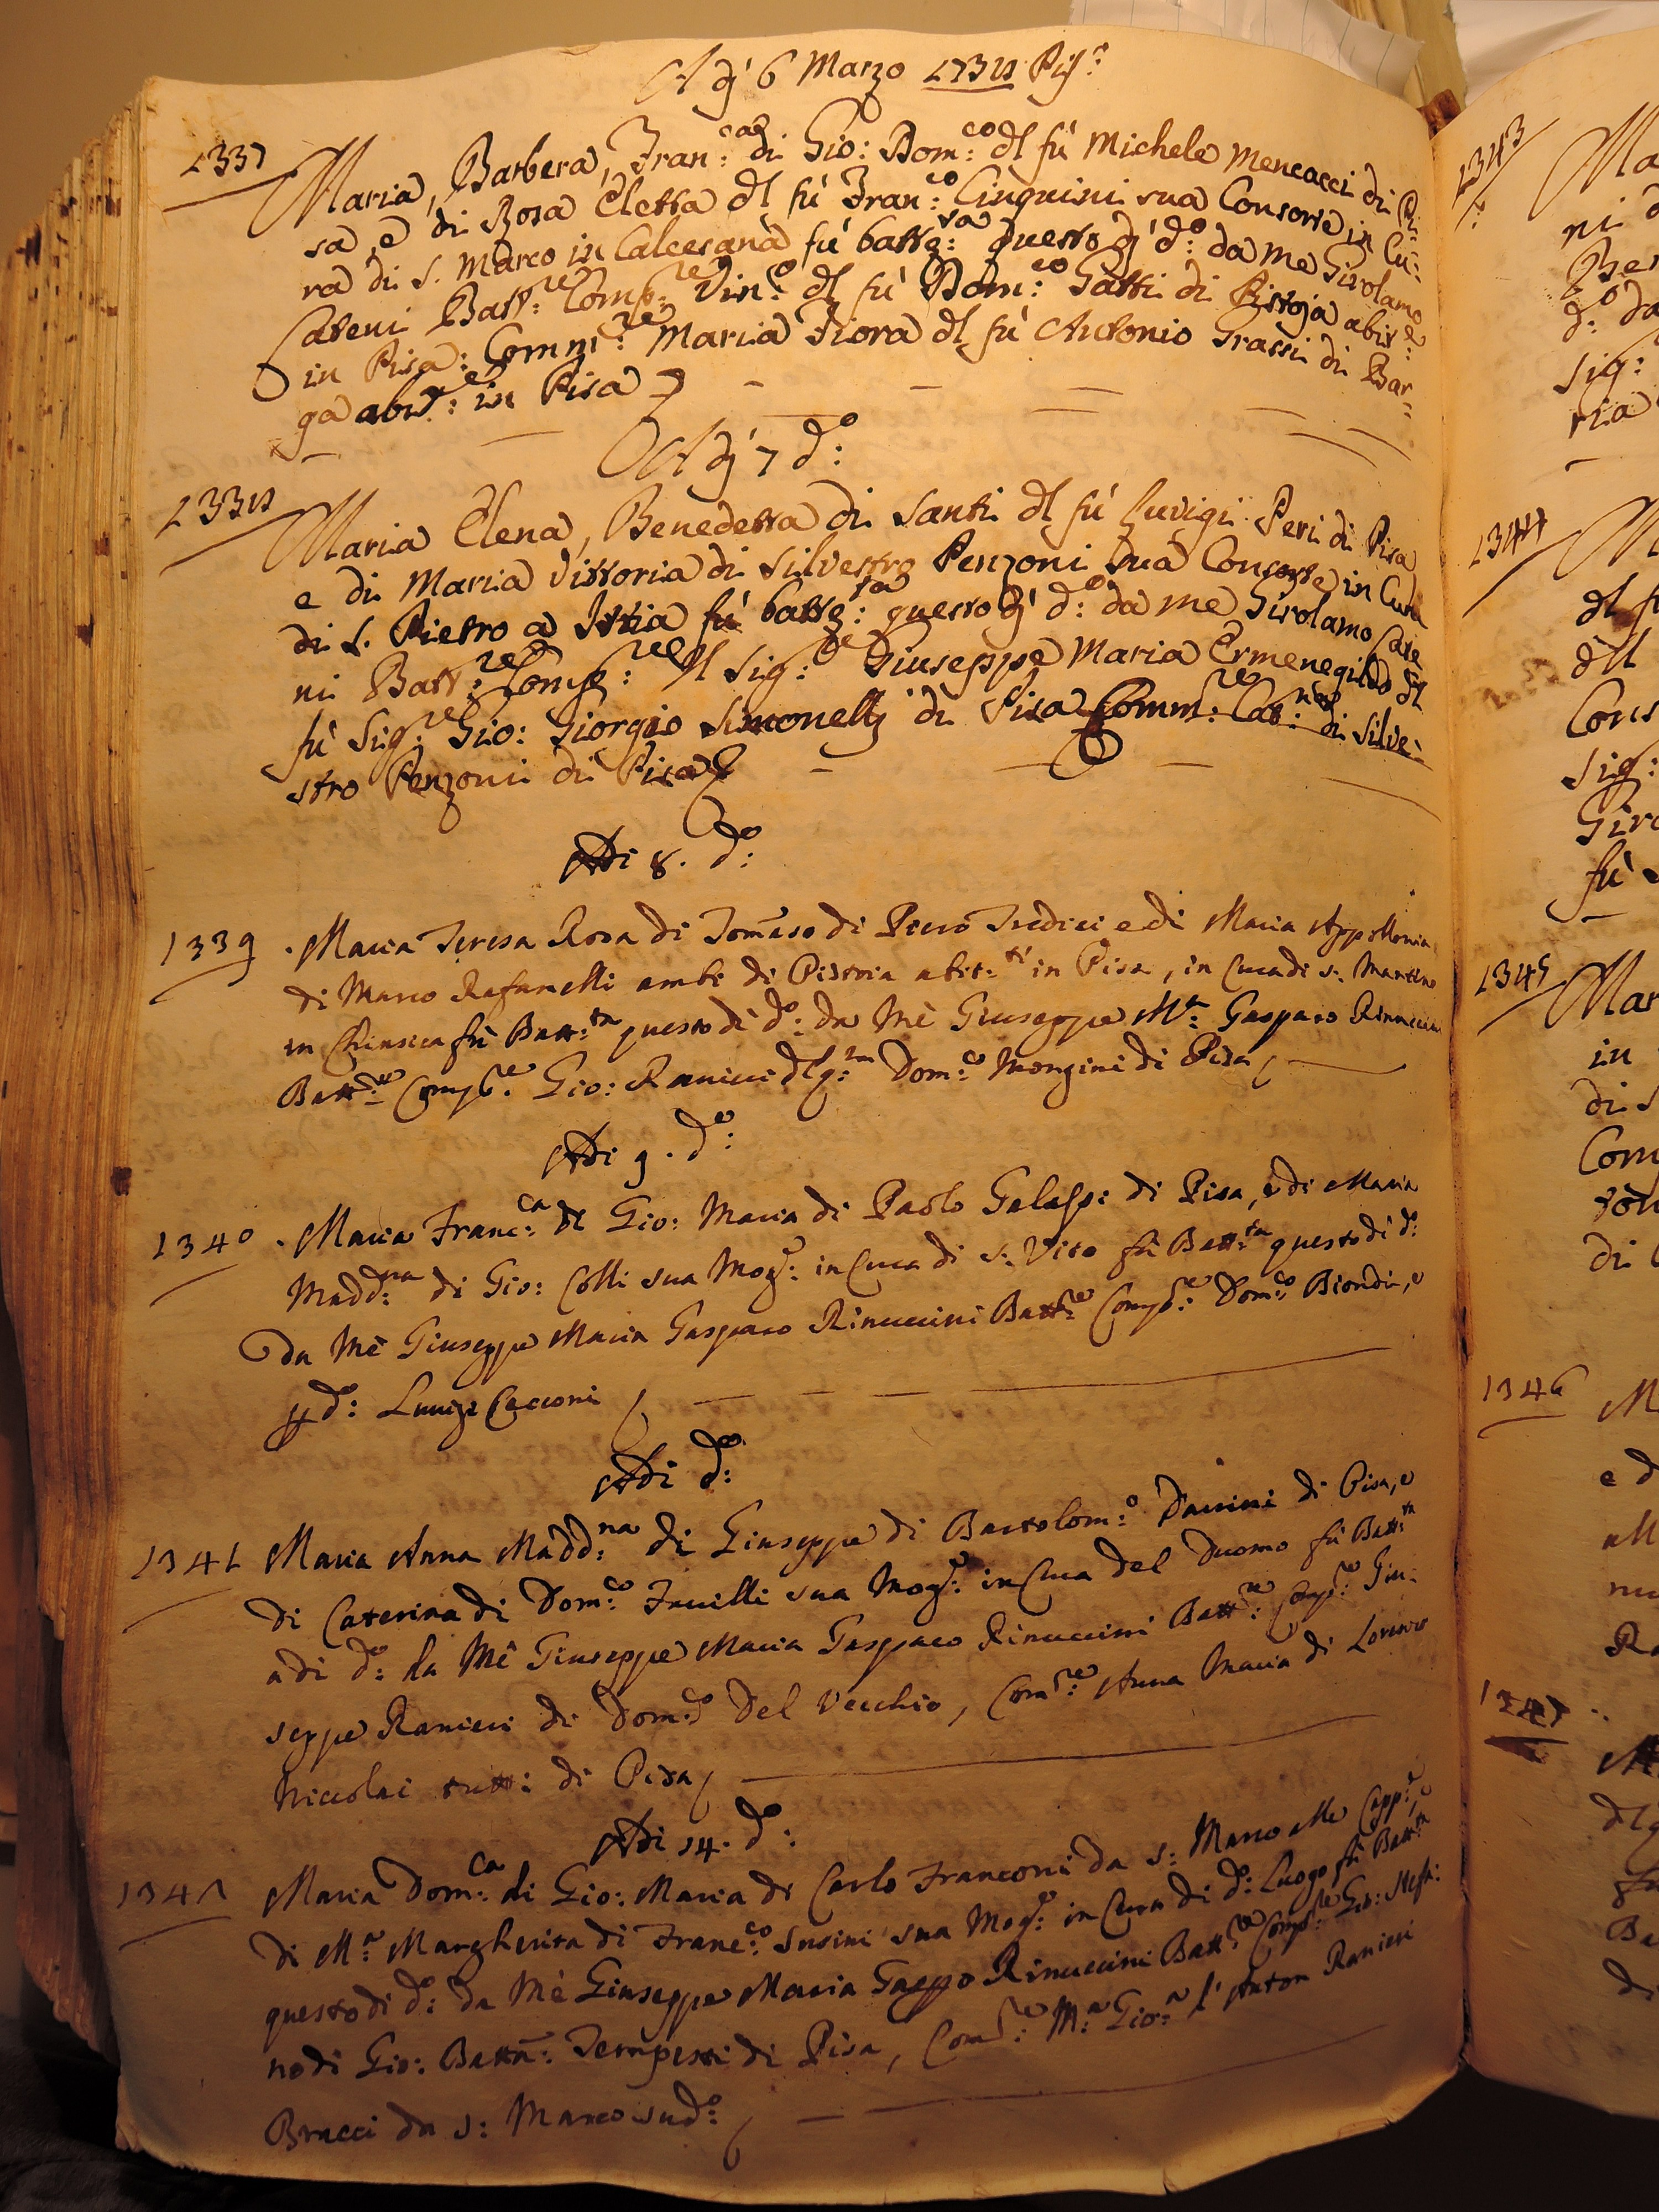 A dì 6 Marzo 1738 Pis:º
1337
Maria, Barbera, Fran:ca di Gio: Dom:co dl fù Michele Mencacci di Pi-
sa, e di Rosa Eletta dl fù Fran:co Cinquini sua Consorte in Cu-
ra di S. Marco in Calcesana fù battz:ta questo dì d:º da me Girolamo
Cateni Batt:re Comp:re Vin:º dl fù Dom:co Gatti di Pistoja abit:e
in Pisa: Comm:re Maria Fiora dl fù Antonio Grassi di Bar-
ga abit:e in Pisa
A dì 7 d:º
1338
Maria Elena, Benedetta di Santi dl fù Luvigi Peri di Pisa
e di Maria Vittoria di Silvestro Penzoni sua Consorte in Cura
di S. Pietro a Ischia fù battz:ta questo dì d:º da me Girolamo Cate
ni Batt:re Comp:re Il Sig:re Giuseppe Maria Ermenegildo dl
fù Sig:re Gio: Giorgio Simonelli di Pisa Comm:re Cat:na di Silve-
stro Penzoni di Pisa
Adi 8. d:º
1339
Maria Teresa Rosa di Tomaso di Piero Tredici e di Maria Appollonia
di Marco Rafanelli ambi di Pistoia abit:ti in Pisa, in Cura di S: Martino
in Chinsica fù Batt:ta questo dì d:º da Mè Giuseppe M:a Gasparo Rinuccini
Batt:re Comp:re Gio: Ranieri dl q:m Dom:co Mongini di Pisa
Adi 9. d:º
1340
Maria Franc:ca di Gio: Maria di Paolo Galassi di Pisa, e di Maria
Madd:na di Gio: Colli sua Mog:e in Cura di S: Vito fù Batt:ta questo dì d:º
da Mè Giuseppe Maria Gasparo Rinuccini Batt:re Comp:re Dom:co Biondi, e
d:º Luigi Cecconi
Adi d:º
1341
Maria Anna Madd:na di Giuseppe di Bartolom:º Danini di Pisa, e
di Caterina di Dom:co sua Mog:e in Cura del Duomo fù Batt:ta
adi d:º da Mè Giuseppe Maria Gasparo Rinuccini Batt:re Comp:re Giu-
seppe Ranieri di Dom:co Del Vecchio, Com:re Anna Maria di Lorenzo
Niccolai tutti di Pisa
Adi 14. d:º
1342
Maria Dom:ca di Gio: Maria di Carlo Franconi da S: Marco alle Capp:e, e
di M:a Margherita di Franc:co Susini sua Mog:e in Cura di d:º Luogo fù Batt:ta
questo dì d:º da Mè Giuseppe Maria Gasppo Rinuccini Batt:re Comp:re Gio: Stefa:
no di Gio: Batta: Tempesti di Pisa, Com:re M:a Gio:a d'Anton Ranieri
Bracci da S: Marco sud:º
1343
1344
1345
1346
1347